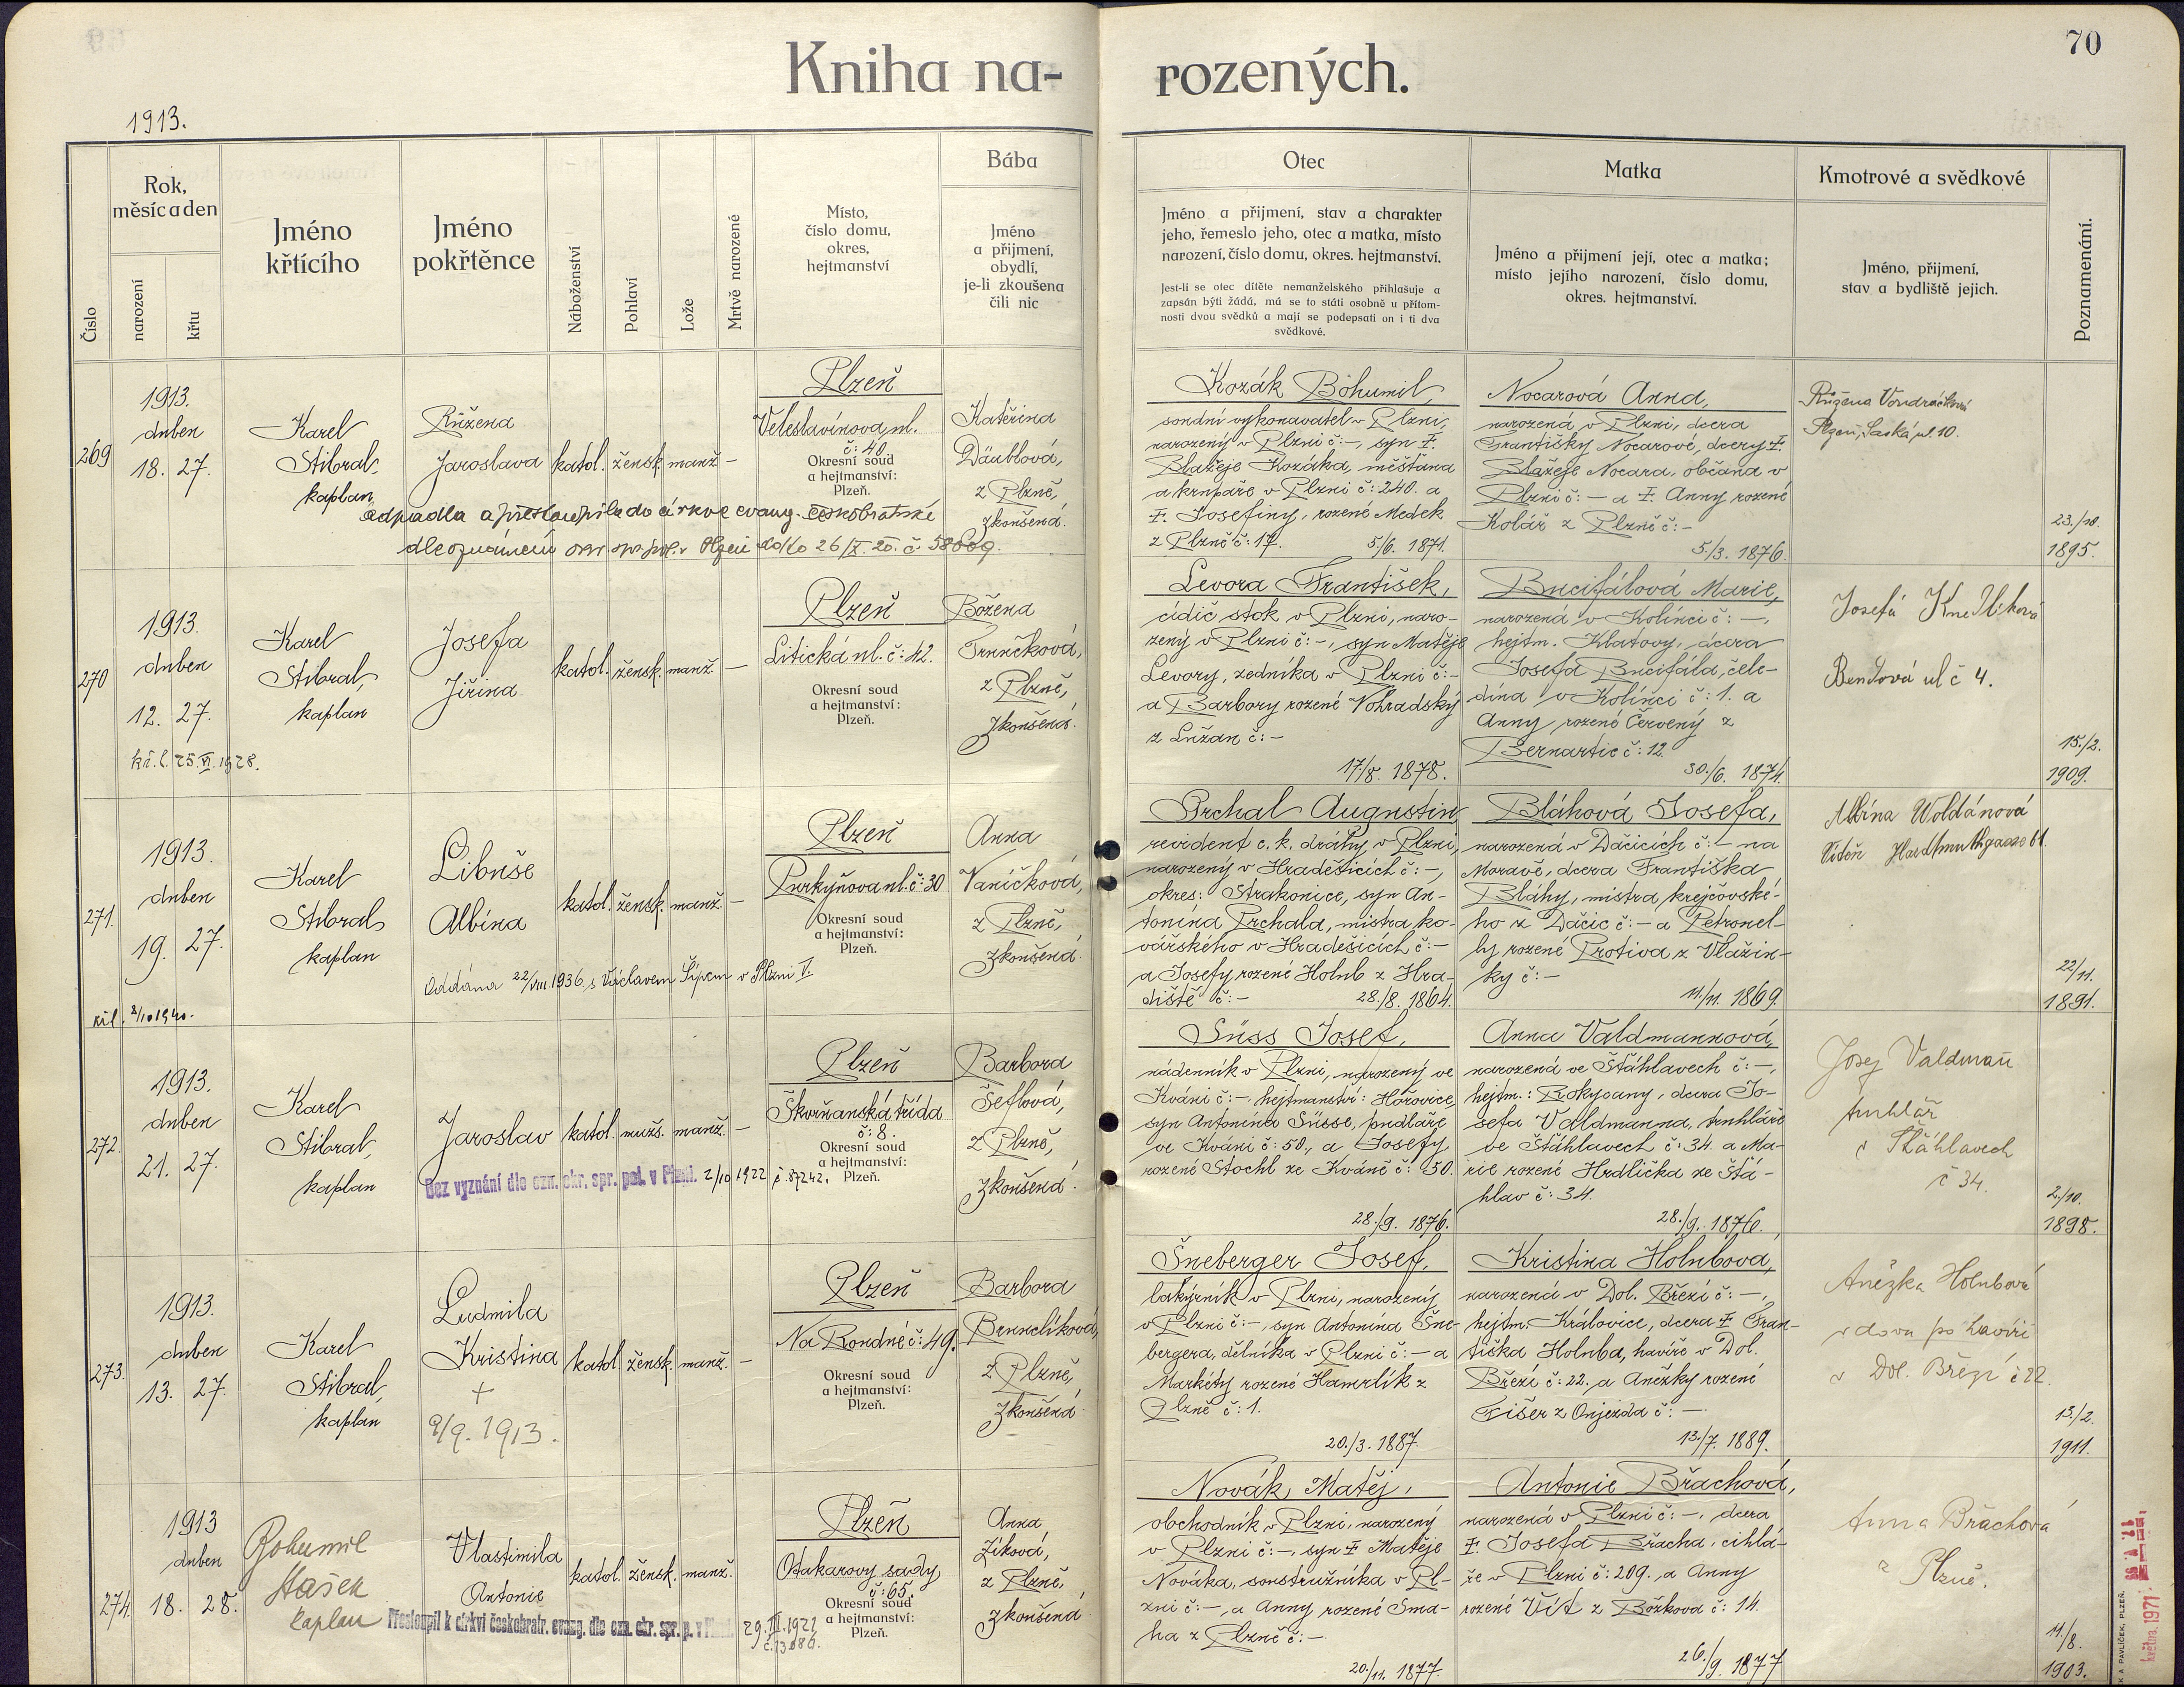 Kniha na-
rozených.
70
1913.
Číslo
Rok,
měsíc a den
narození
křtu
Jméno
křtícího
Jméno
pokřtěnce
Náboženství
Pohlaví
Lože
Mrtvě narozené
Místo,
číslo domu,
okres,
hejtmanství
Bába
Jméno
a přijmení,
obydlí,
je-li zkoušena
čili nic
Otec
Jméno a přijmení, stav a charakter
jeho, řemeslo jeho, otec a matka, místo
narození, číslo domu, okres. hejtmanství.
Jest-li se otec dítěte nemanželského přihlašuje a
zapsán býti žádá, má se to státi osobně u přítom-
nosti dvou svědků a mají se podepsati on i ti dva
svědkové.
Matka
Jméno a přijmení její, otec a matka;
místo jejího narození, číslo domu,
okres. hejtmanství.
Kmotrové a svědkové
Jméno, přijmení,
stav a bydliště jejich.
Poznamenání.
269
1913.
duben
18. 27.
Karel
Stibral,
kaplan
Růžena
Jaroslava
katol. žensk. manž. –
Plzeň
Veleslavínova ul.
č: 48.
Okresní soud
a hejtmanství:
Plzeň.
Kateřina
Däublová,
z Plzně,
zkoušená.
odpadla a přestoupila do církve evang. českobratrské
dle oznámení Plzeň 26/X. 20. č.
Kozák Bohumil,
soudní vykonavatel v Plzni,
narozený v Plzni č: –, syn ☨.
Blažeje Kozáka, měšťana
a krupaře v Plzni č: 240. a
☨. Josefiny, rozené Medek
z Plzně č: 17. 5/6. 1871.
Nocarová Anna,
narozená v Plzni, dcera
Františky Nocarové, dcery ☨.
Blažeje Nocara, občana v
Plzni č: – a ☨. Anny rozené
Kolář z Plzně č: –
5./3. 1876.
Růžena Vondráčková
Plzeň, Saská ul. 10.
23./10.
1895.
270
1913.
duben
12. 27.
kř. l. 25. VI. 1928.
Karel
Stibral,
kaplan
Josefa
Jiřina
katol. žensk. manž. –
Plzeň
Litická ul. č: 42.
Okresní soud
a hejtmanství:
Plzeň.
Božena
Trnečková,
z Plzně,
zkoušená.
Levora František,
cídič stok v Plzni, naro-
zený v Plzni č: –, syn Matěje
Levory, zedníka v Plzni č: –
a Barbory rozené Vohradský
z Lužan č: –
17/8. 1878.
Bucifálová Marie,
narozená v Kolinci č: –,
hejtm. Klatovy, dcera
Josefa Bucifála, čele-
dína v Kolinci č: 1. a
Anny, rozené Červený z
Bernartic č: 12.
30./6. 1874.
Josefa
Bendová ul č 4.
15./2.
1909.
271.
1913.
duben
19. 27.
kř.l. 2/10 1940.
Karel
Stibral,
kaplan
Libuše
Albína
katol. žensk. manž. –
Plzeň
Purkyňova ul. č: 30
Okresní soud
a hejtmanství:
Plzeň.
Anna
Vaníčková,
z Plzně,
zkoušená.
Oddána 22/VIII. 1936 s Václavem Šípem v Plzni I.
Prchal Augustin,
revident c. k. dráhy v Plzni,
narozený v Hradešicích č: –,
okres: Strakonice, syn An-
tonína Prchala, mistra ko-
vářského v Hradešicích č: –
a Josefy rozené Holub z Hra-
diště č: – 28./8. 1864.
Bláhová Josefa,
narozená v Dačicích č: – na
Moravě, dcera Františka
Bláhy, mistra krejčovské-
ho z Dačic č: – a Petronel-
ly rozené Protiva z Vlažin-
ky č: –
11/11. 1869.
Albína Woldánová
Vídeň Hardtmuthgasse 61.
22/11.
1891.
272.
1913.
duben
21. 27.
Karel
Stibral,
kaplan
Jaroslav
katol. mužs. manž. –
Plzeň
Škvrňanská třída
č: 8.
Okresní soud
a hejtmanství:
Plzeň.
Barbora
Šeflová,
z Plzně,
zkoušená.
Bez vyznání dle ozn. okr. spr. pol. v Plzni. 2/10 1922 č. 87242.
Süss Josef,
nádenník v Plzni, narozený ve
Kváni č: –, hejtmanství: Hořovice,
syn Antonína Süsse, pudlaře
ve Kváni č: 50., a Josefy
rozené Stochl ze Kváně č: 50.
28./9. 1876.
Anna Valdmannová,
narozená ve Štáhlavech č: –,
hejtm.: Rokycany, dcera Jo-
sefa Valdmanna, truhláře
ve Štáhlavech č: 34. a Ma-
rie rozené Hrdlička ze Štá-
hlav č: 34.
28./9. 1876.
Josef Valdman
truhlář
v Štáhlavech
č 34.
2./10.
1898.
273.
1913.
duben
13. 27.
Karel
Stibral,
kaplan
Ludmila
Kristina
+
9/9. 1913.
katol. žensk. manž. –
Plzeň
Na Rondně č: 49.
Okresní soud
a hejtmanství:
Plzeň.
Barbora
z Plzně,
zkoušená.
Šneberger Josef,
lakýrník v Plzni, narozený
v Plzni č: –, syn Antonína Šne-
bergera, dělníka v Plzni č: – a
Markéty rozené Hamrlík z
Plzně č: 1.
20./3. 1887.
Kristina Holubova,
narozená v Dol. Březí č: –,
hejtm. Královice, dcera ☨ Fran-
tiška Holuba, havíře v Dol.
Březí č: 22. a Anežky rozené
Fišer z Oujezda č: –
13./7. 1889.
Anežka Holubová
vdova po havíři
v Dol. Březí č 22.
13./2.
1911.
274.
1913
duben
18. 28.
Bohumil
Hašek
kaplan
Vlastimila
Antonie
katol. žensk. manž.
Plzeň
Otakarovy sady
č: 65.
Okresní soud
a hejtmanství:
Plzeň.
Anna
Zíková,
z Plzně,
zkoušená
Přestoupil k církvi českobratr. evang. dle ozn. okr. spr. p. v Plzni 29. III. 1921
č. 13086.
Novák Matěj,
obchodník v Plzni, narozený
v Plzni č: –, syn ☨ Matěje
Nováka, soustružníka v Pl-
zni č: –, a Anny rozené Sma-
ha z Plzně č: –.
20./11. 1877.
Antonie Břachová,
narozená v Plzni č: –, dcera
☨. Josefa Břacha, cihlá-
ře v Plzni č: 209. a Anny
rozené Vít z Božkova č: 14.
26./9. 1877
Anna Břachová
z Plzně.
11/8.
1903.
K A PAVLÍČEK, PLZEŇ.
května 1971.